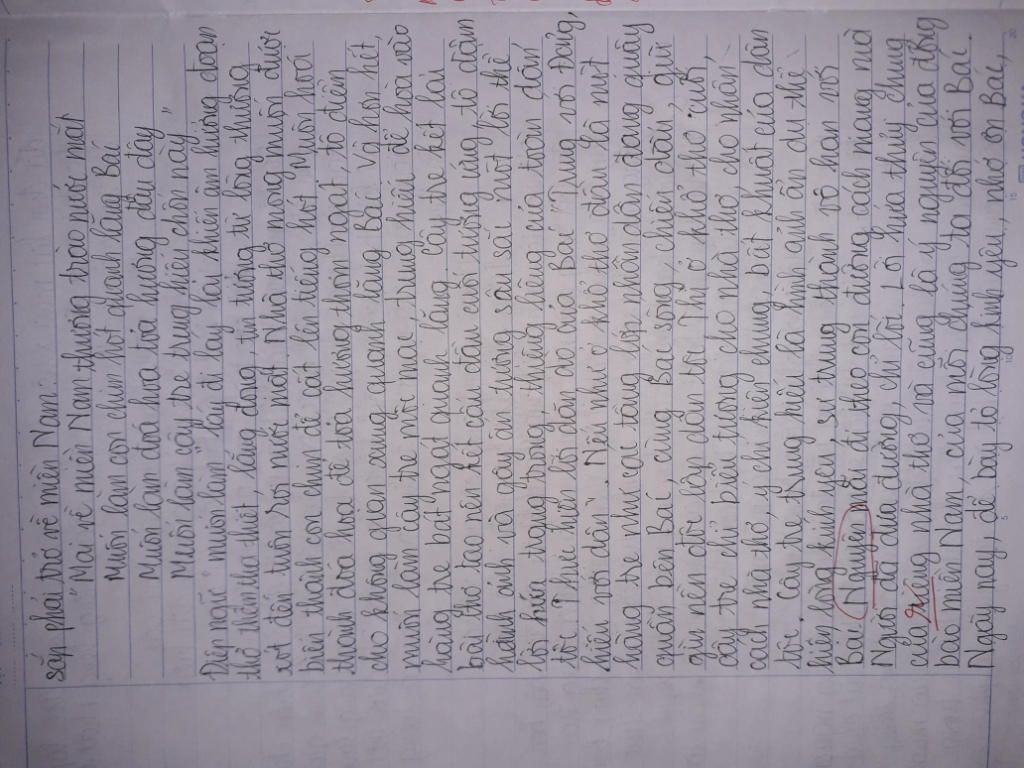 sắp phải trở về miền Nam.
"Mai về miền Nam thương trào nước mắt
Muốn làm con chim hót quanh lăng Bác
Muốn làm đoá hoa toả hương đâu đây
Muốn làm cây tre trung hiếu chốn này"
Điệp ngữ "muốn làm" láy đi láy lại khiến âm hưởng đoạn
thơ thêm tha thiết, lắng đọng, tư tưởng từ lòng thương
xót đến tuôn rơi nước mắt. Nhà thơ mong muốn được
biến thành con chim để cất lên tiếng hót. Muốn hoá
thành đoá hoa để toả hương thơm ngát, tô điểm
cho không gian xung quanh lăng Bác. Và hơn hết,
muốn làm cây tre mộc mạc, trung hiếu để hoà vào
hàng tre bát ngát quanh lăng. Cây tre kết lại
bài thơ tạo nên kết cấu đầu cuối tương ứng, tô đậm
hình ảnh và gây ấn tượng sâu sắc. Một lời thề
lời hứa trang trọng, thiêng liêng của toàn dân
tộc. Thực hiện lời dặn dò của Bác "Trung với Đảng,
hiếu với dân". Nếu như ở khổ thơ đầu là nút
hàng tre như cái tầng lớp nhân dân đang quây
quần bên Bác, cùng Bác sống, chiến đấu, giữ
gìn nền độc lập dân tộc. Thì ở khổ thơ cuối,
cây tre chỉ biểu tượng cho nhà thơ, cho nhân
cách nhà thơ, ý chí kiên chung bất khuất của dân
tộc. Cây tre trung hiếu là hình ảnh ẩn dụ thể
hiện lòng kính yêu, sự trung thành vô hạn với
Bác. Nguyện mãi đi theo con đường cách mạng mà
Người đã đưa đường chỉ lối. Lời hứa thủy chung
của giêng nhà thơ và cũng là ý nguyện của đồng
bào miền Nam, của mỗi chúng ta đối với Bác.
Ngày nay, để bày tỏ lòng kính yêu, nhớ ơn Bác,